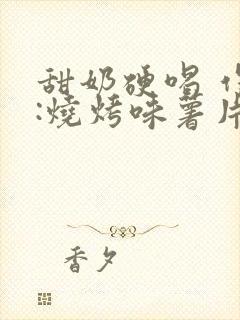 甜奶硬唱
:燒烤味薯片
香夕